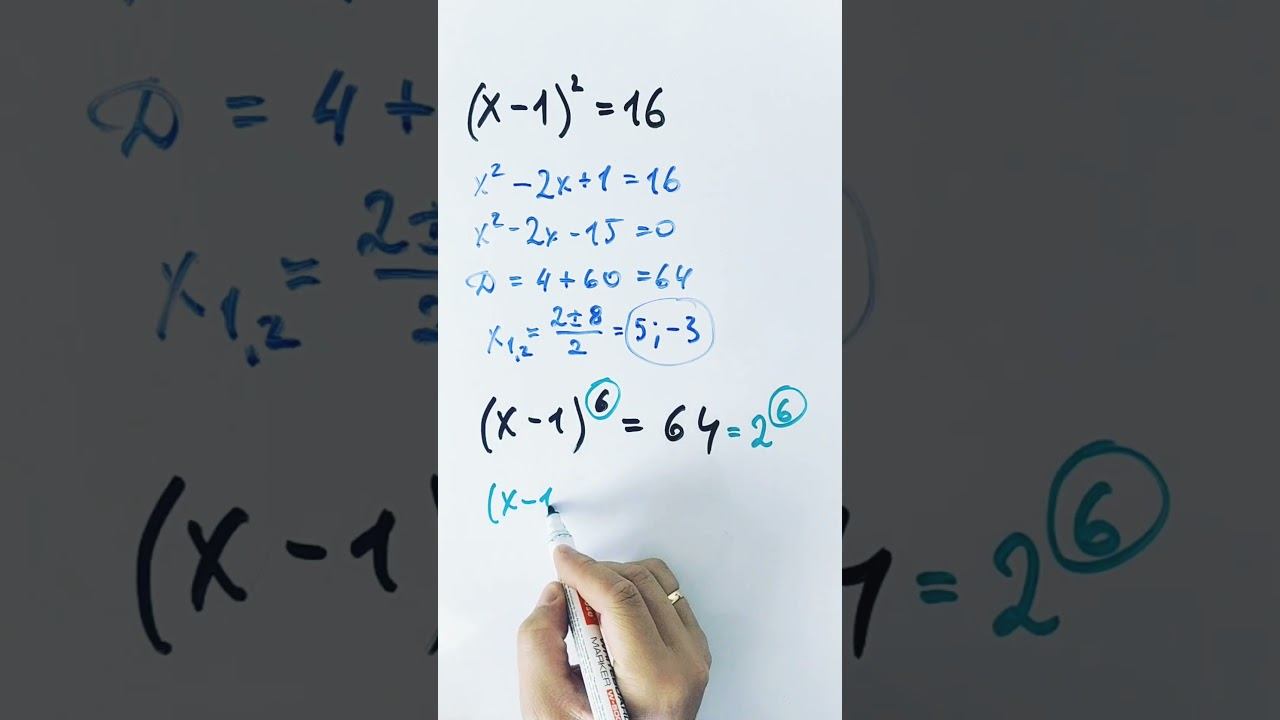 (x-1)² = 16
x² - 2x + 1 = 16
x² - 2x - 15 = 0
D = 4 + 60 = 64
x₁,₂ = (2±8)/2 = 5 ; -3
(x-1)⁶ = 64 = 2⁶
(x-1
MARKER